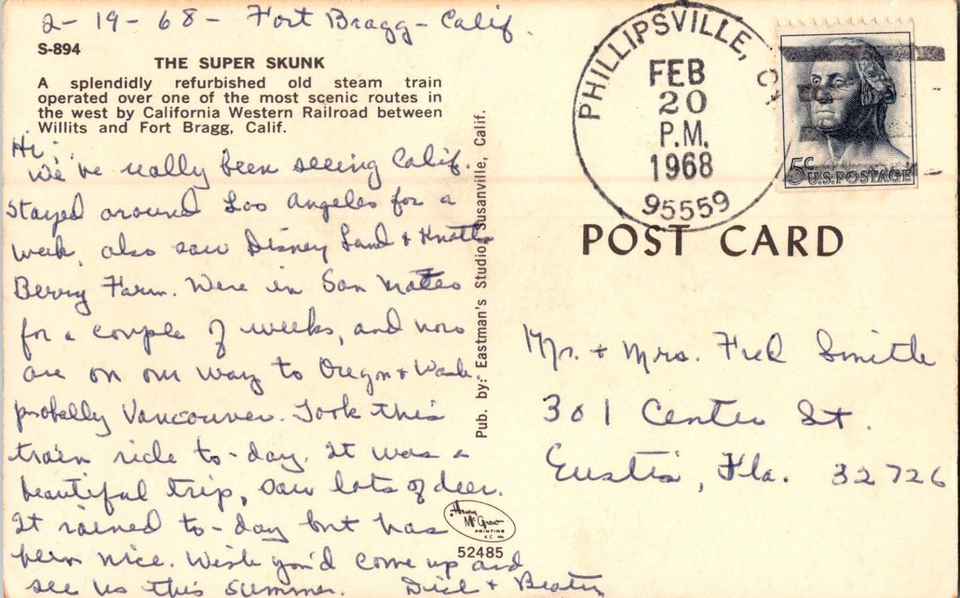 2-19-68- Fort Bragg-Calif.
S-894
THE SUPER SKUNK
A splendidly refurbished old steam train
operated over one of the most scenic routes in
the west by California Western Railroad between
Willits and Fort Bragg, Calif.
Hi:
We've really been seeing Calif.
Stayed around Los Angeles for a
week, also saw Disney Land + Knotts
Berry Farm. Were in San Mateo
for a couple of weeks, and now
are on our way to Oregon + Wash.
probably Vancouver. Took this
train ride to-day. It was a
beautiful trip, saw lots of deer.
It rained to-day but has
been nice. Wish you'd come up and
see us this summer. Dick +
Pub. by: Eastman's Studio, Susanville, Calif.
Henry
McGrew
PRINTING
K.C. Mo.
52485
PHILLIPSVILLE, CA
FEB
20
P.M.
1968
95559
5c U.S. POSTAGE
POST CARD
Mr. + Mrs. Fred Smith
301 Center St.
Eustis, Fla. 32726